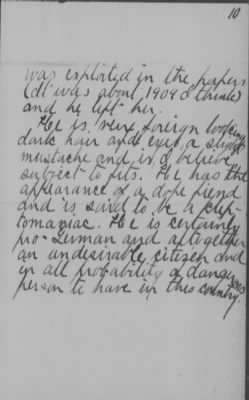 10
was exploited in the papers
(It was about 1909 I think)
and he left her.
He is very foreign looking
dark hair and eyes, a slight
mustache and is I believe
subject to fits. He has the
appearance of a dope fiend
and is said to be a clep-
tomaniac. He is certainly
pro-German and altogether
an undesirable citizen and
in all probability a dangerous
person to have in this country.